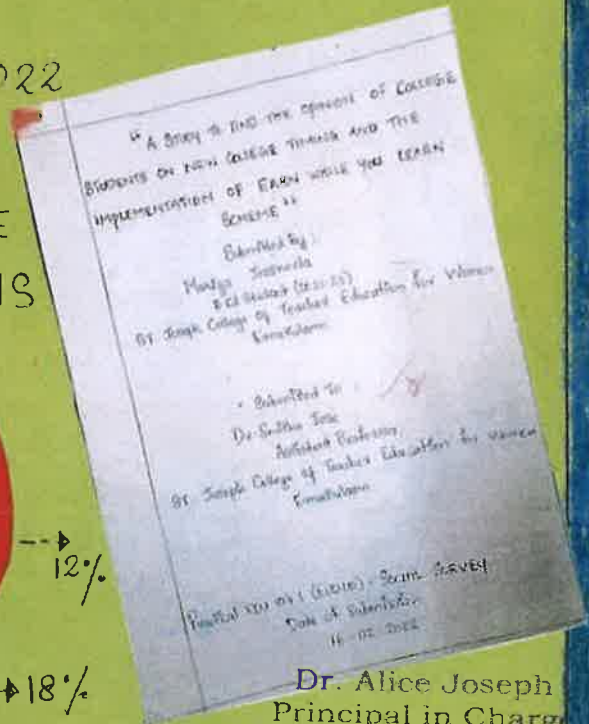 022
E
IS
"A STUDY TO FIND THE OPINION OF COLLEGE
STUDENTS ON NEW COLLEGE TIMING AND THE
IMPLEMENTATION OF EARN WHILE YOU LEARN
SCHEME"
Submitted By :
B.Ed Student
ST. Joseph College of Teacher Education for Women
Ernakulam
Submitted To :
Dr. Smitha Jose
Assistant Professor
ST. Joseph College of Teacher Education for Women
Ernakulam
Practical SOCIAL SURVEY
Date of Submission
16-02-2022
12%
18%
Dr. Alice Joseph
Principal in Charge